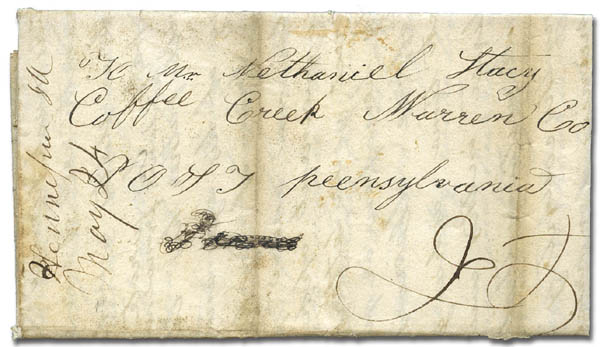 To Mr Nethaniel Stacy
Coffee Creek Warren Co
POST peensylvania
Hennepin Ill
May 24